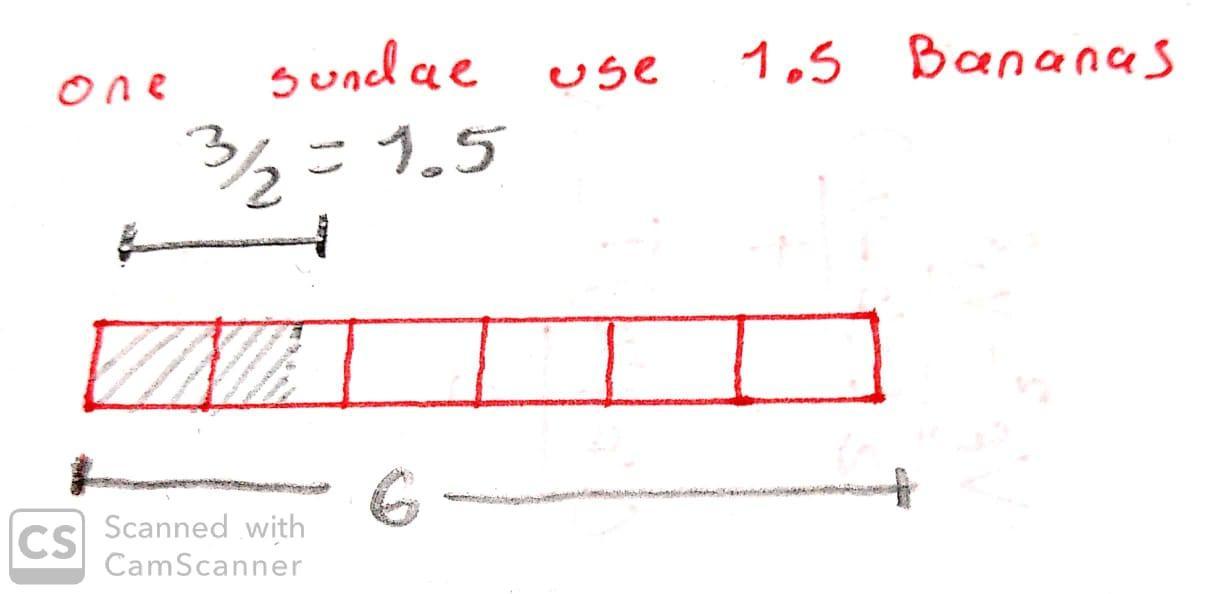 one sundae use 1.5 Bananas
3/2 = 1.5
6
CS Scanned with
CamScanner